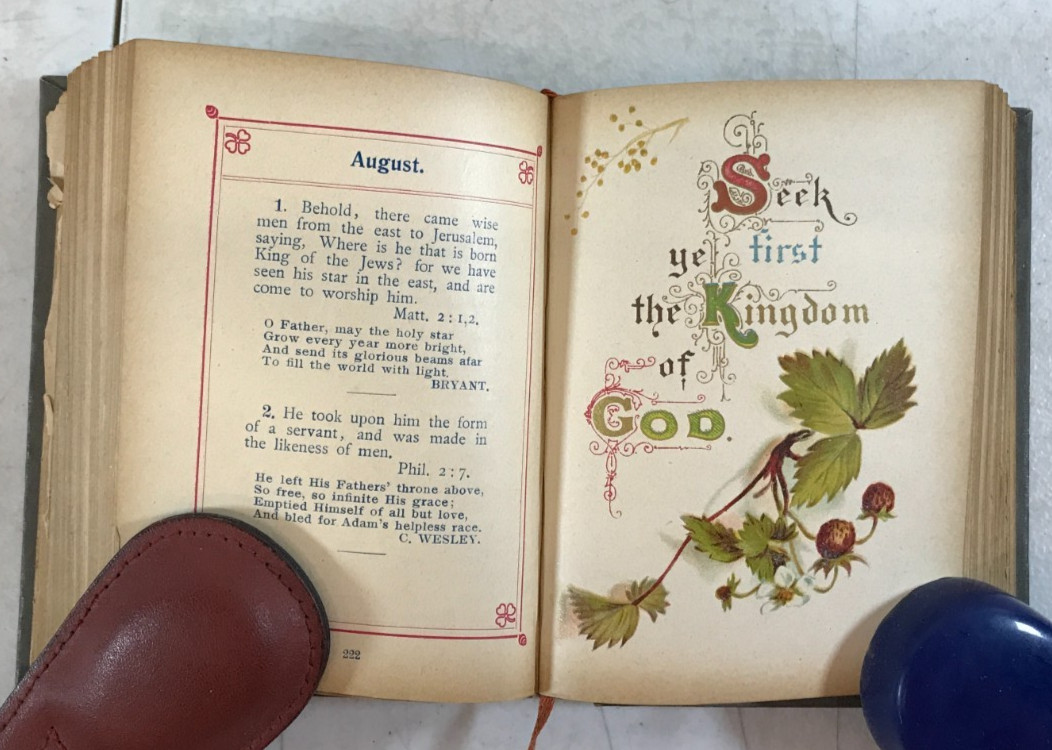 August.
1. Behold, there came wise
men from the east to Jerusalem,
saying, Where is he that is born
King of the Jews? for we have
seen his star in the east, and are
come to worship him.
Matt. 2:1,2.
O Father, may the holy star
Grow every year more bright,
And send its glorious beams afar
To fill the world with light.
BRYANT.
2. He took upon him the form
of a servant, and was made in
the likeness of men.
Phil. 2:7.
He left His Fathers' throne above,
So free, so infinite His grace;
Emptied Himself of all but love,
And bled for Adam's helpless race.
C. WESLEY.
222
Seek
ye first
the Kingdom
of
GOD.